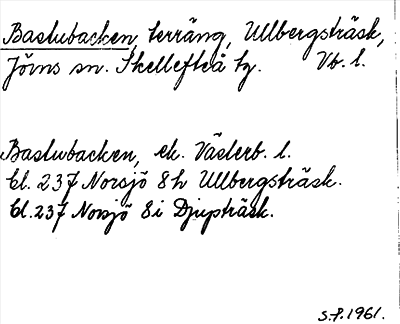 Bastubacken, terräng, Ullbergsträsk,
Jörns sn. Skellefteå tg. Vb. l.
Bastubacken, ek. Västerb. l.
Bl. 237 Norsjö 8h Ullbergsträsk.
Bl. 237 Norsjö 8i Djupträsk.
S.P. 1961.